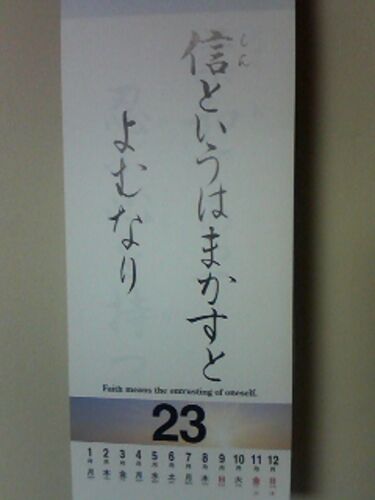 しん
信というはまかすと
よむなり
Faith means the entrusting of oneself.
23
1 2 3 4 5 6 7 8 9 10 11 12
月 月 月 月 月 月 月 月 月 月 月 月
月 木 木 日 火 金 日